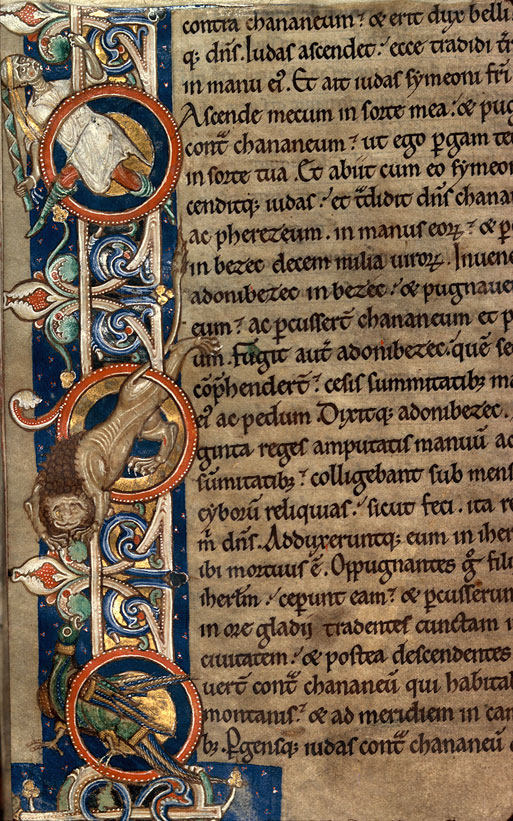 contra chananeum? & erit dux belli
q; dñs. Iudas ascendet. ecce tradidi
in manu ei'. Et ait iudas symeoni fri
Ascende mecum in sorte mea. & pug
cont chananeum? ut ego pgam te
in sorte tua. Et abiit cum eo symeon
cenditq; iudas. et tdidit dñs chana
ac pherezeum. in manus eorum? & p
in bezec decem milia uiroꝝ. Inuene
adonibezec in bezec. & pugnaue
eum? ac pcusserт chananeum et p
um. fugit aut adonibezec. quē se
cōphenderт? cesis summitatib; ma
ei' ac pedum. Dixitq; adonibezec.
ginta reges amputatis manuū ac
sūmitatib;? colligebant sub mens
cyborū reliquias. sicut feci. ita re
m dns. Adduxeruntq; eum in iher
ibi mortuus ē. Oppugnantes g filii
iherlm. ceperunt eam? & pcusserun
in ore gladii tradentes cunctam i
ciuitatem. & postea descendentes
uert cont chananeū qui habita
montanis? & ad meridiem in cam
b;. Pgensq; iudas cont chananeū